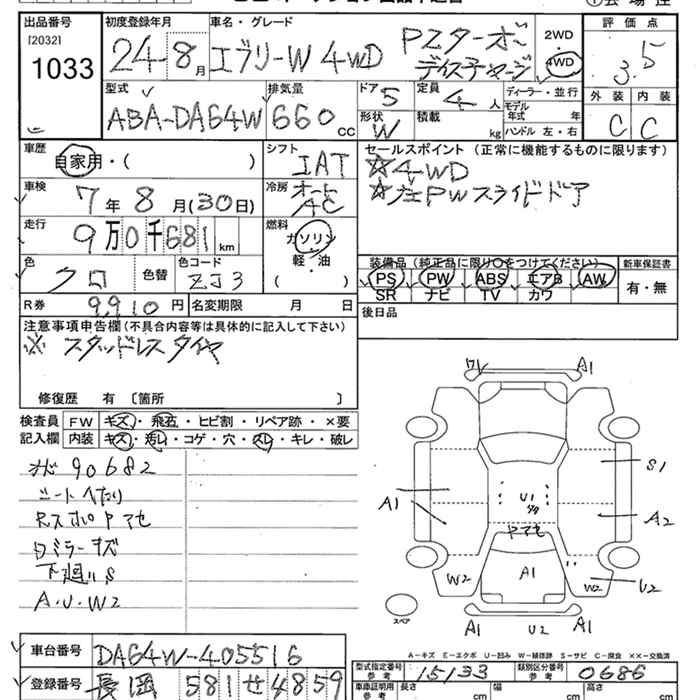 出品番号 初度登録年月 車名・グレード 評価点
[2032]
1033
24-8月 エブリーW 4WD PZターボ ディスチャージ 2WD 4WD 3.5
型式 排気量 ドア 定員 ディーラー・並行 外装 内装
ABA-DA64W 660cc 5 4人 モデル年式 年 C C
形状 W 積載 kg ハンドル 左・右
車歴 シフト セールスポイント（正常に機能するものに限ります）
自家用・（ ） IAT ☆4WD
車検 冷房 オート AC ☆左PWスライドドア
7年8月（30日）
走行 燃料
9万0千681km ガソリン 軽・油 （ ）
色 色替 色コード
クロ ZJ3
装備品（純正品に限り○をつけてください） 新車保証書
PS PW ABS エアB AW 有・無
SR ナビ TV カワ
R券 9,910円 名変期限 月 日 後日品
注意事項申告欄（不具合内容等は具体的に記入して下さい）
※ スタッドレスタイヤ
修復歴 有〔箇所 〕
検査員 FW キズ・飛石・ヒビ割・リペア跡・×要
記入欄 内装 キズ・汚レ・コゲ・穴・スレ・キレ・破レ
90682
シートヘタリ
Rスポイヤセ
Dミラーキズ
下廻りS
A.U.W2
A1
S1
A1 U1 A2
ヤセ
W2 A1 W2 U2
スペア A1 U2 A1
A-キズ E-エクボ U-凹み W-補修跡 S-サビ C-腐食 ××-交換済
車台番号 DA64W-405516
型式指定番号 参考 15133 類別区分番号 参考 0686
登録番号 長岡 581 せ 4859
車庫証明用 参考 長さ cm 幅 cm 高さ cm